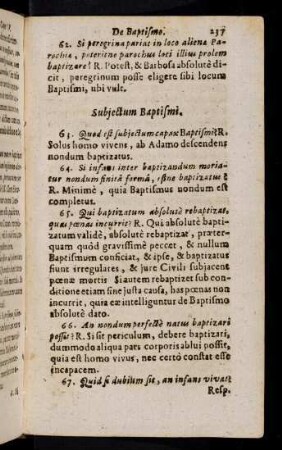 De Baptismo. 237
62. Si peregrina pariat in loco aliena Pa-
rochia, poteritne parochus loci illius prolem
baptizare? R. Potest, & Barbosa absolutè di-
cit, peregrinum posse eligere sibi locum
Baptismi, ubi vult.
Subjectum Baptismi.
63. Quod est subjectum capax Baptismi? R.
Solus homo vivens, ab Adamo descendens
nondum baptizatus.
64. Si infans inter baptizandum moria-
tur nondum finitâ formâ, estne baptizatus?
R. Minimè, quia Baptismus nondum est
completus.
65. Qui baptizatum absolutè rebaptizat,
quas pœnas incurrit? R. Qui absolutè bapti-
zatum validè, absolutè rebaptizat, præter-
quam quòd gravissimè peccet, & nullum
Baptismum conficiat, & ipse, & baptizatus
fiunt irregulares, & jure Civili subjacent
pœnæ mortis Si autem rebaptizet sub
conditione etiam sine justa causa, has pœnas non
incurrit, quia eæ intelliguntur de Baptismo
absolutè dato.
66. An nondum perfectè natus baptizari
possit? R. Si sit periculum, debere baptizari,
dummodo aliqua pars corporis ablui possit,
quia est homo vivus, nec certò constat esse
incapacem.
67. Quid si dubium sit, an infans vivat?
Resp.